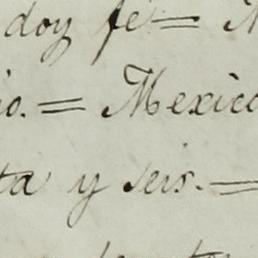 doy fe =
io. = Mexico
ta y seis. =